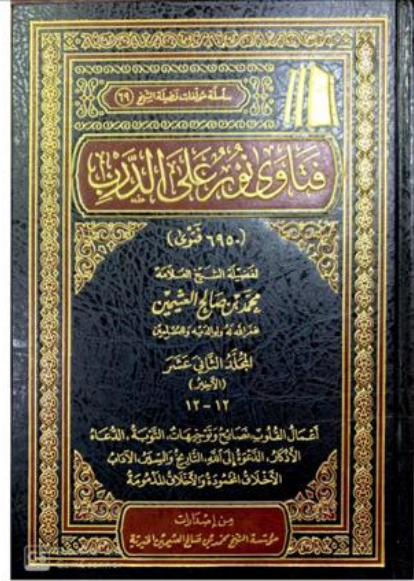 سلسلة مؤلفات فضيلة الشيخ (٦٩)
فَتَاوَى نُورٌ عَلَى الدَّرْبِ
(٦٩٥٠ فَتْوَى)
لفضيلة الشيخ العلامة
محمد بن صالح العثيمين
غفر الله له ولوالديه وللمسلمين
المُجلَّد الثاني عَشَر
(الأخير)
١٢ - ١٢
أعمال القلوب، نصائح وتوجيهات، التوبة، الدعاء
الأذكار، الدعوة إلى الله، التاريخ والسير، الآداب
الأخلاق المحمودة والأخلاق المذمومة
من إصدارات
مؤسسة الشيخ محمد بن صالح العثيمين الخيرية